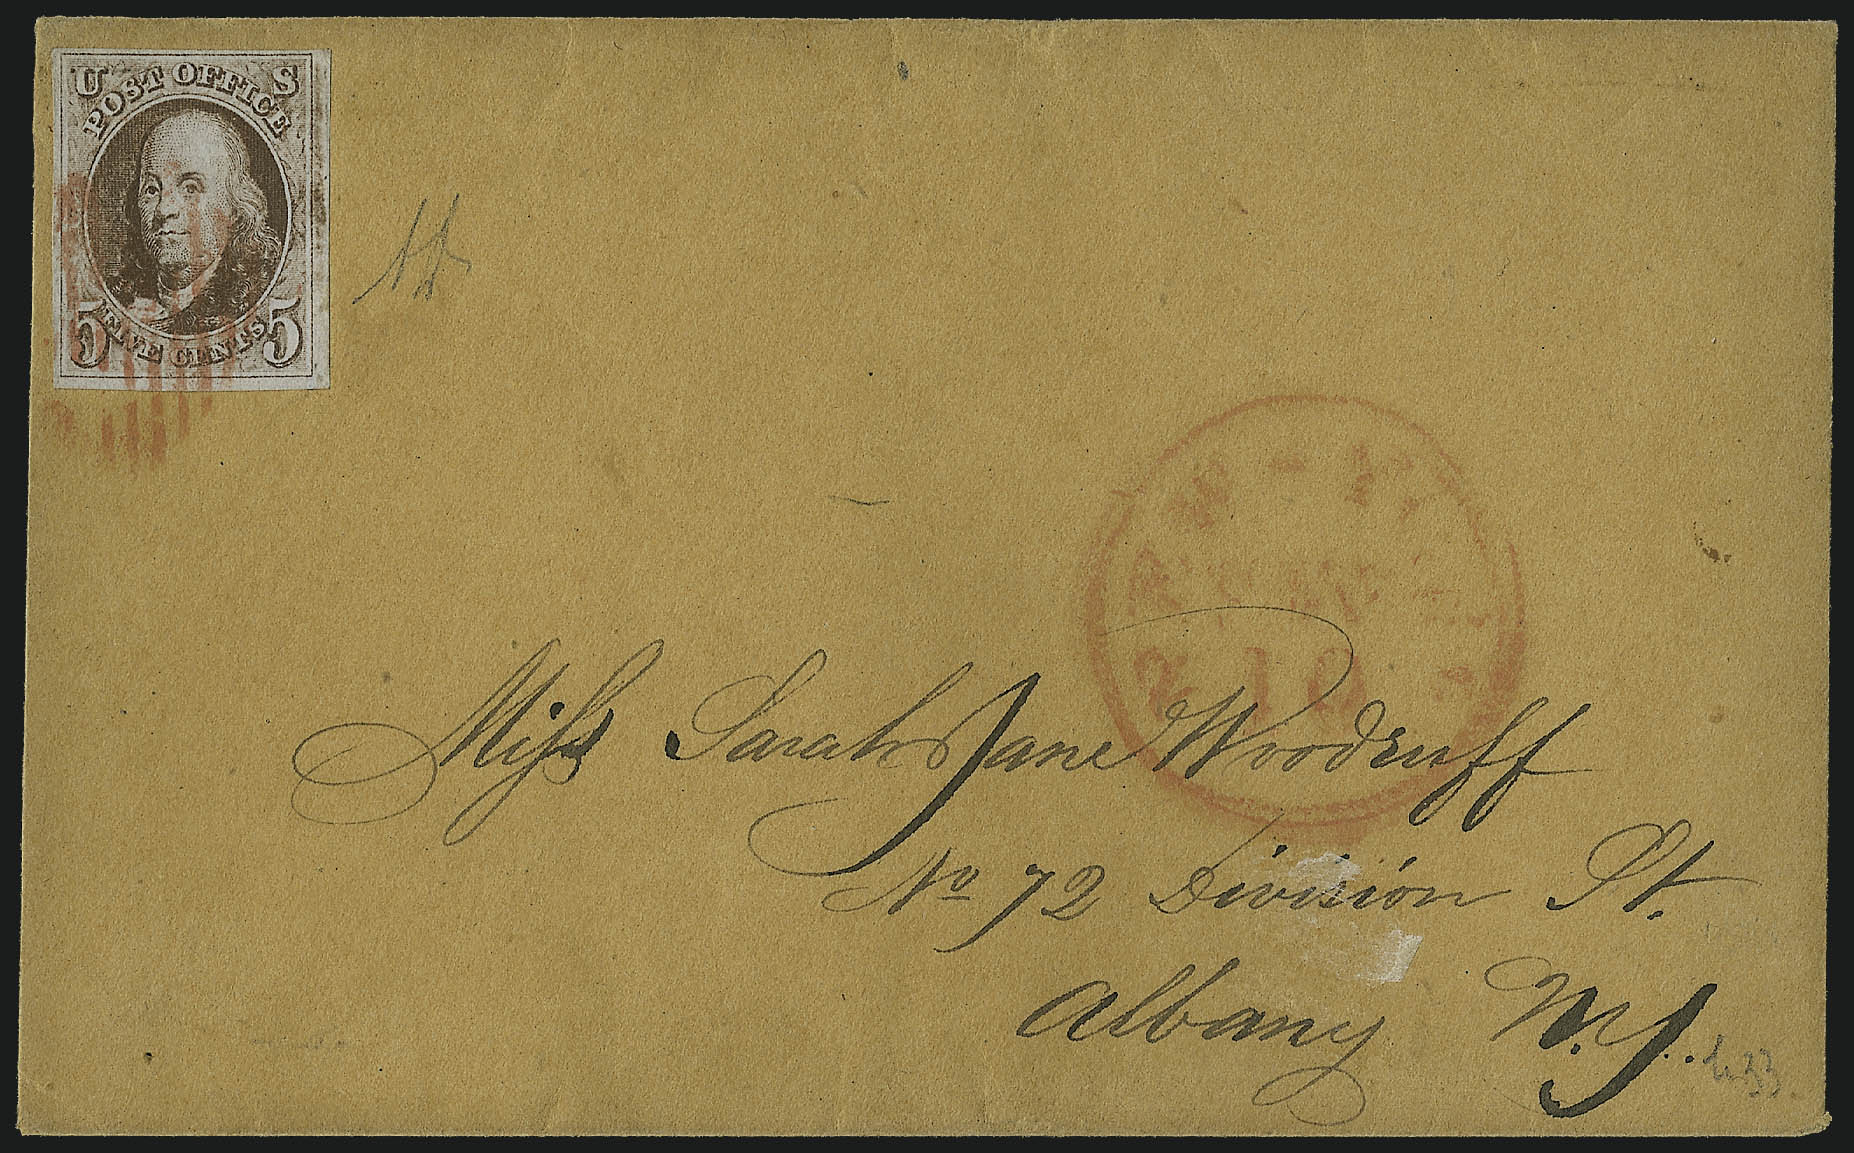 U S
POST OFFICE
5 FIVE CENTS 5
10
Miss Sarah Jane Woodruff
No 72 Division St.
Albany N.Y.